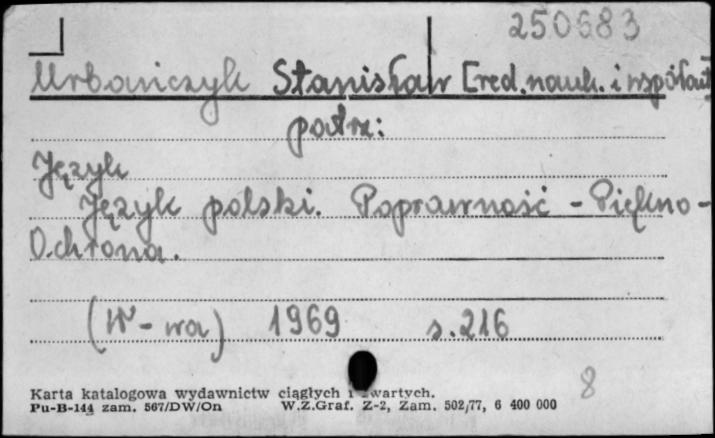 250683
Urbańczyk Stanisław [red. nauk. i współaut]
patrz:
Język
Język polski. Poprawność - Piękno -
Ochrona.
(W-wa) 1969 s. 216
8
Karta katalogowa wydawnictw ciągłych i zwartych.
Pu-B-144 zam. 567/DW/On W.Z.Graf. Z-2, Zam. 502/77, 6 400 000